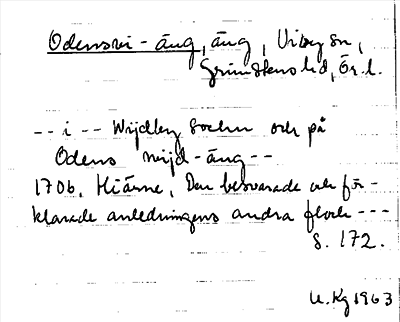 Odensvi-äng, äng, Viby sn,
Grimstens hd, Ör. l.
-- i -- Wijdby Sochn och på
Odens wijd-äng --
1706. Hiärne, Den besvarade och för-
klarade anledningens andra flock ---
s. 172.
U. Kg 1963